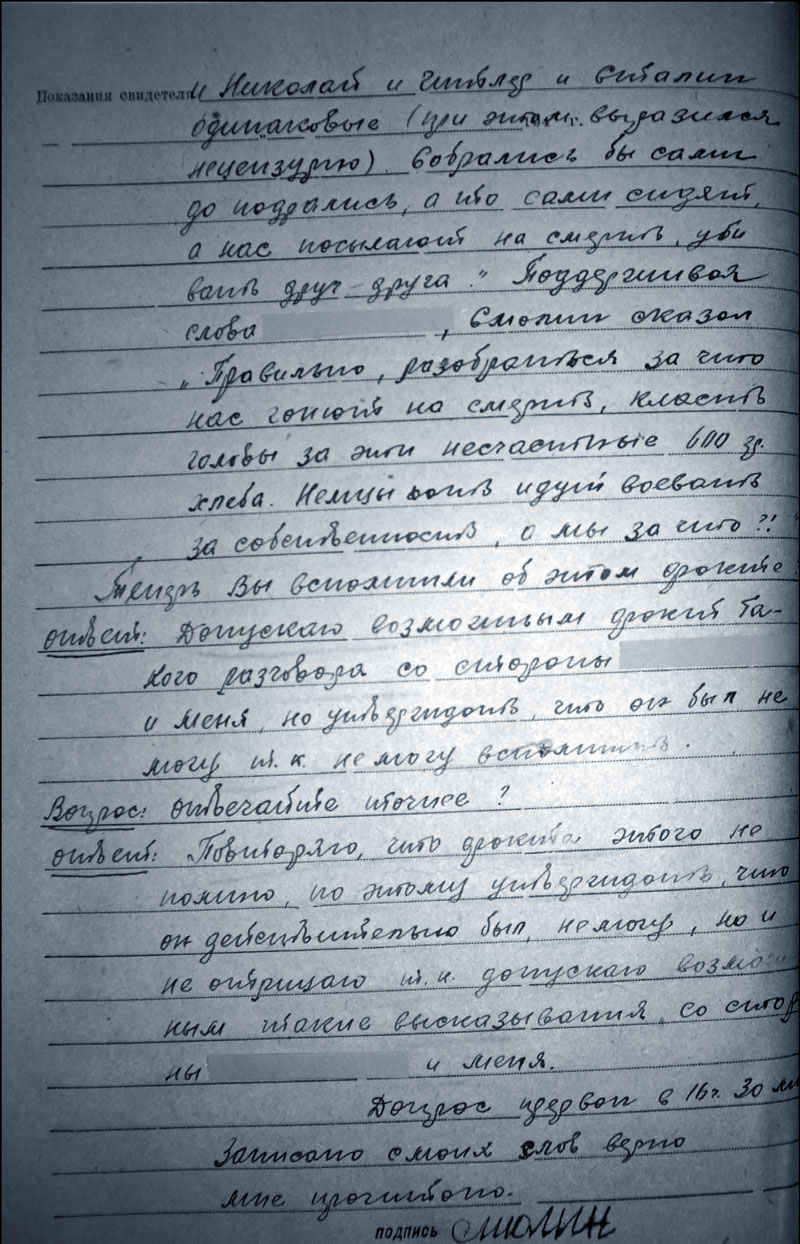 Показания свидетеля
и Николай и Гитлер и Сталин
одинаковые (при этом выразился
нецензурно). Собрались бы сами
до подрались, а то сами сидят,
а нас посылают на смерть, уби
вать друг-друга." Поддерживая
слова , Смолин сказал
„Правильно, разобраться за что
нас гонют на смерть, класть
головы за эти несчастные 600 гр.
хлеба. Немцы хоть идут воевать
за собственность, а мы за что?!"
Теперь Вы вспомнили об этом факте
ответ: Допускаю возможным факт та-
кого разговора со стороны
и меня, но утверждать, что он был не
могу т.к. не могу вспомнить.
Вопрос: отвечайте точнее?
ответ: Повторяю, что факта этого не
помню, по этому утверждать, что
он действительно был, немогу, но и
не отрицаю т.к. допускаю возмож
ным такие высказывания со сторо
ны и меня.
Допрос прерван в 16 ч. 30 ми
Записано с моих слов верно
мне прочитано.
подпись Смолин